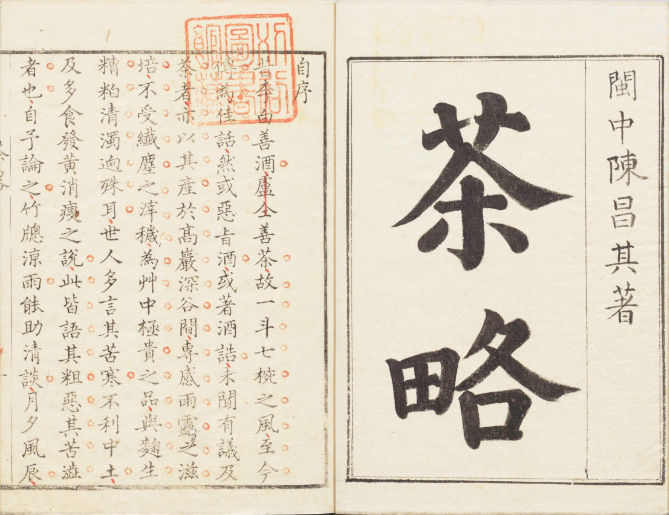 閩中陳昌其著
茶略
自序
昔李白善酒盧仝善茶故一斗七椀之風至今
傳為佳話然或惡旨酒或著酒誥未聞有議及
茶者亦以其產於高巖深谷間專感雨露之滋
培不受纖塵之滓穢為艸中極貴之品與麴生
糟粕清濁迥殊耳世人多言其苦寒不利中土
及多食發黃消瘦之說此皆語其粗惡其苦澁
者也自予論之竹牕涼雨能助清談月夕風辰